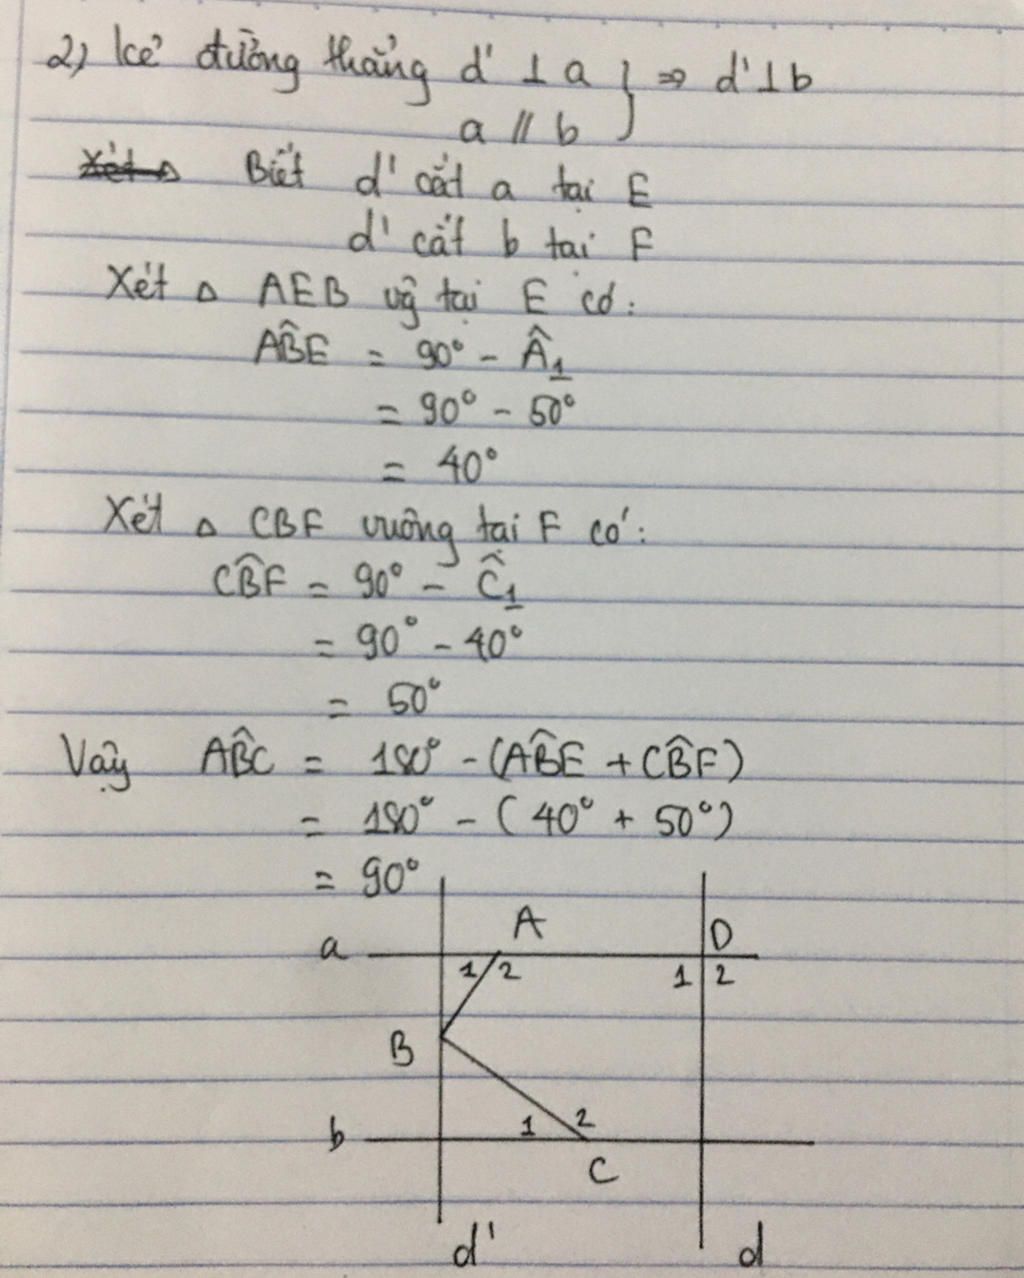 2) Kẻ đường thẳng d' ⊥ a } ⇒ d' ⊥ b
a // b
Xét △ Biết d' cắt a tại E
d' cắt b tại F
Xét △ AEB vg tại E có:
ABÊ = 90° - Â₁
= 90° - 50°
= 40°
Xét △ CBF vuông tại F có:
CB̂F = 90° - Ĉ₁
= 90° - 40°
= 50°
Vậy AB̂C = 180° - (AB̂E + CB̂F)
= 180° - (40° + 50°)
= 90°
A D
a 1 2 1 2
B
b 1 2
C
d' d